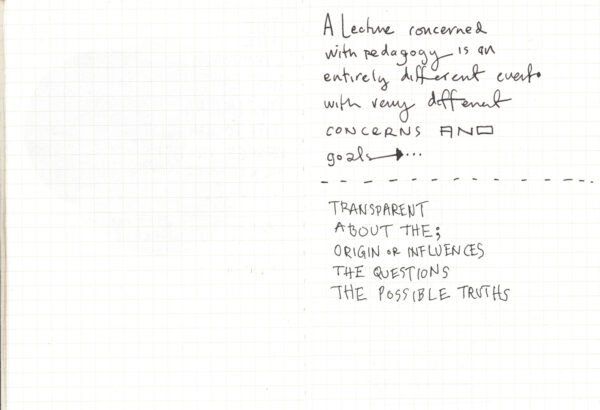 A Lecture concerned
with pedagogy is an
entirely different event.
with very different
CONCERNS AND
goals → ...
TRANSPARENT
ABOUT THE;
ORIGIN OR INFLUENCES
THE QUESTIONS
THE POSSIBLE TRUTHS